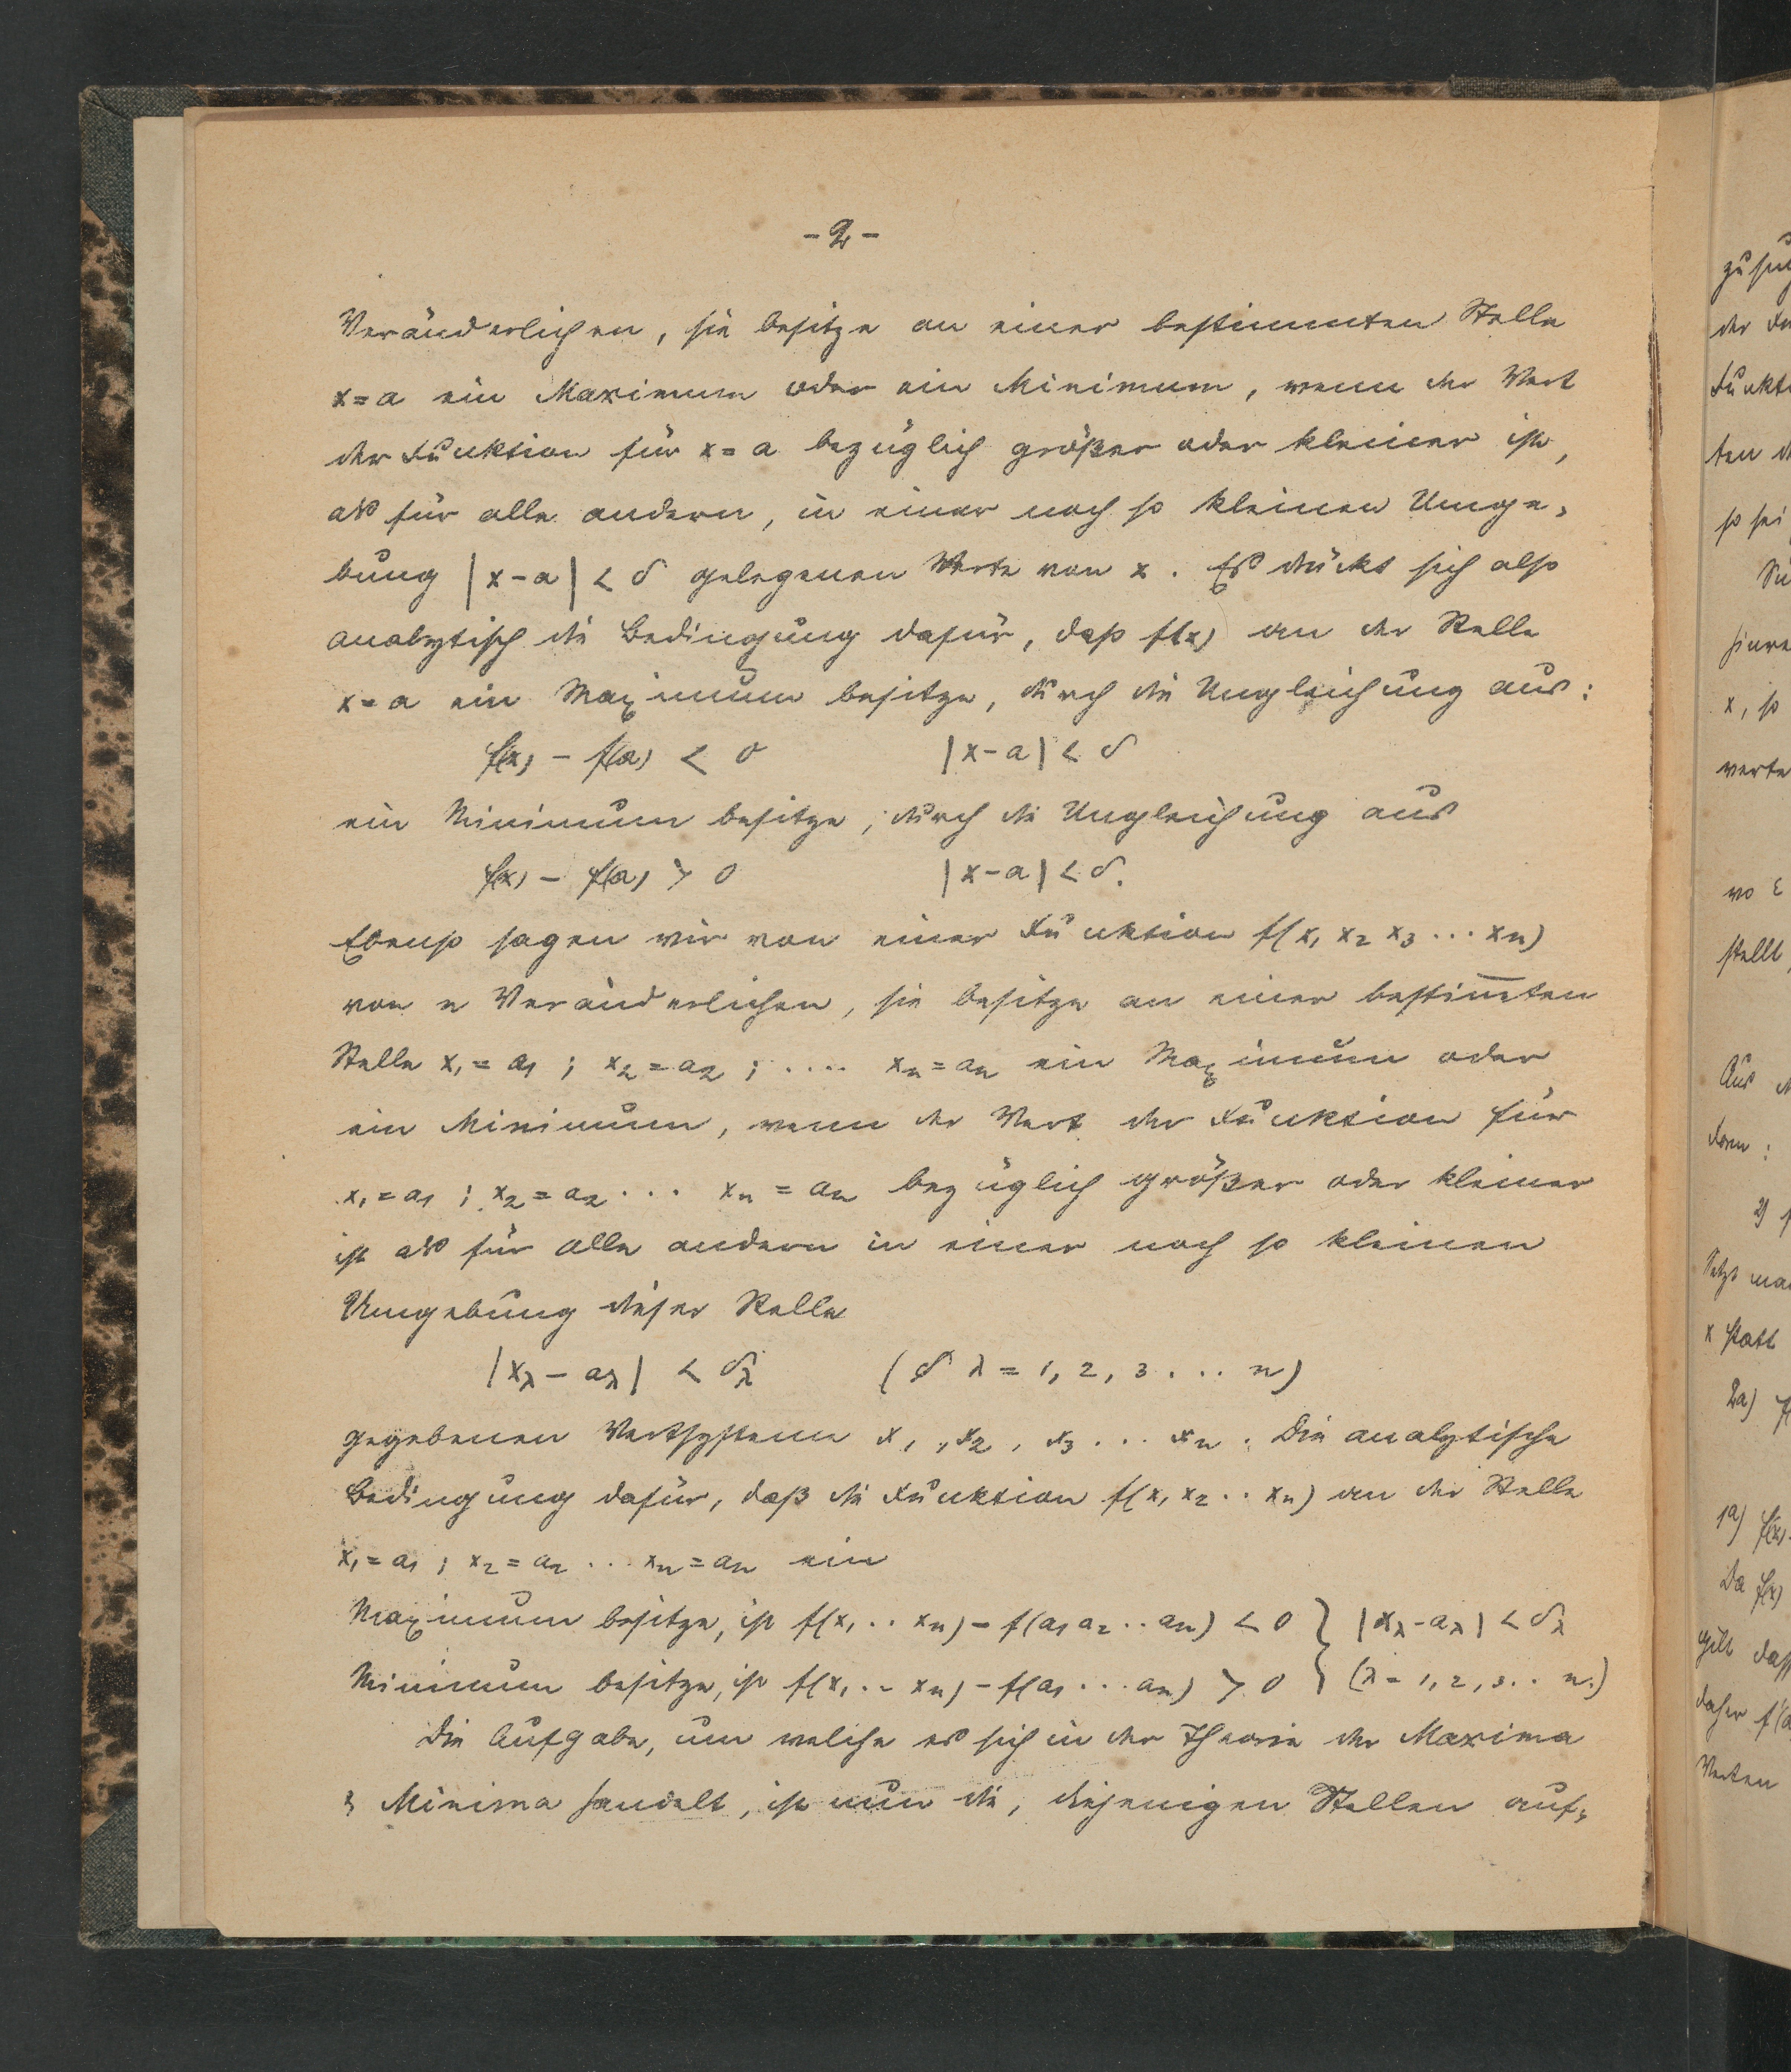 - 2 -
Veränderlichen, sie besitze an einer bestimmten Stelle
x = a ein Maximum oder ein Minimum, wenn der Wert
der Funktion für x = a bezüglich größer oder kleiner ist,
als für alle andern, in einer noch so kleinen Umge-
bung |x-a| < δ gelegenen Werte von x. Es drückt sich also
analytisch die Bedingung dafür, dass f(x) an der Stelle
x = a ein Maximum besitze, durch die Ungleichung aus:
f(x) - f(a) < 0 |x-a| < δ
ein Minimum besitze, durch die Ungleichung aus
f(x) - f(a) > 0 |x-a| < δ.
Ebenso sagen wir von einer Funktion f(x₁ x₂ x₃ ... xn)
von n Veränderlichen, sie besitze an einer bestim̅ten
Stelle x₁ = a₁ ; x₂ = a₂ ; .... xn = an ein Maximum oder
ein Minimum, wenn der Wert der Funktion für
x₁ = a₁ ; x₂ = a₂ ... xn = an bezüglich größer oder kleiner
ist als für alle andern in einer noch so kleinen
Umgebung dieser Stelle
|xλ - aλ| < δλ (δ λ = 1, 2, 3 ... n)
gegebenen Wertsysteme x₁, x₂, x₃ ... xn. Die analytische
Bedingung dafür, daß die Funktion f(x₁ x₂ .. xn) an der Stelle
x₁ = a₁ ; x₂ = a₂ ... xn = an ein
Maximum besitze, ist f(x₁ .. xn) - f(a₁ a₂ .. an) < 0 } |xλ - aλ| < δλ
Minimum besitze, ist f(x₁ .. xn) - f(a₁ ... an) > 0 } (λ = 1, 2, 3 .. n.)
Die Aufgabe, um welche es sich in der Theorie der Maxima
& Minima handelt, ist nun die, diejenigen Stellen auf-
der
ten
so sei
x, so
wo ε
stellt,
Aus
Form:
2)
Setzt man
x statt
2a)
1a) f(x)
Da f(x)
gilt dass
daher
Werten